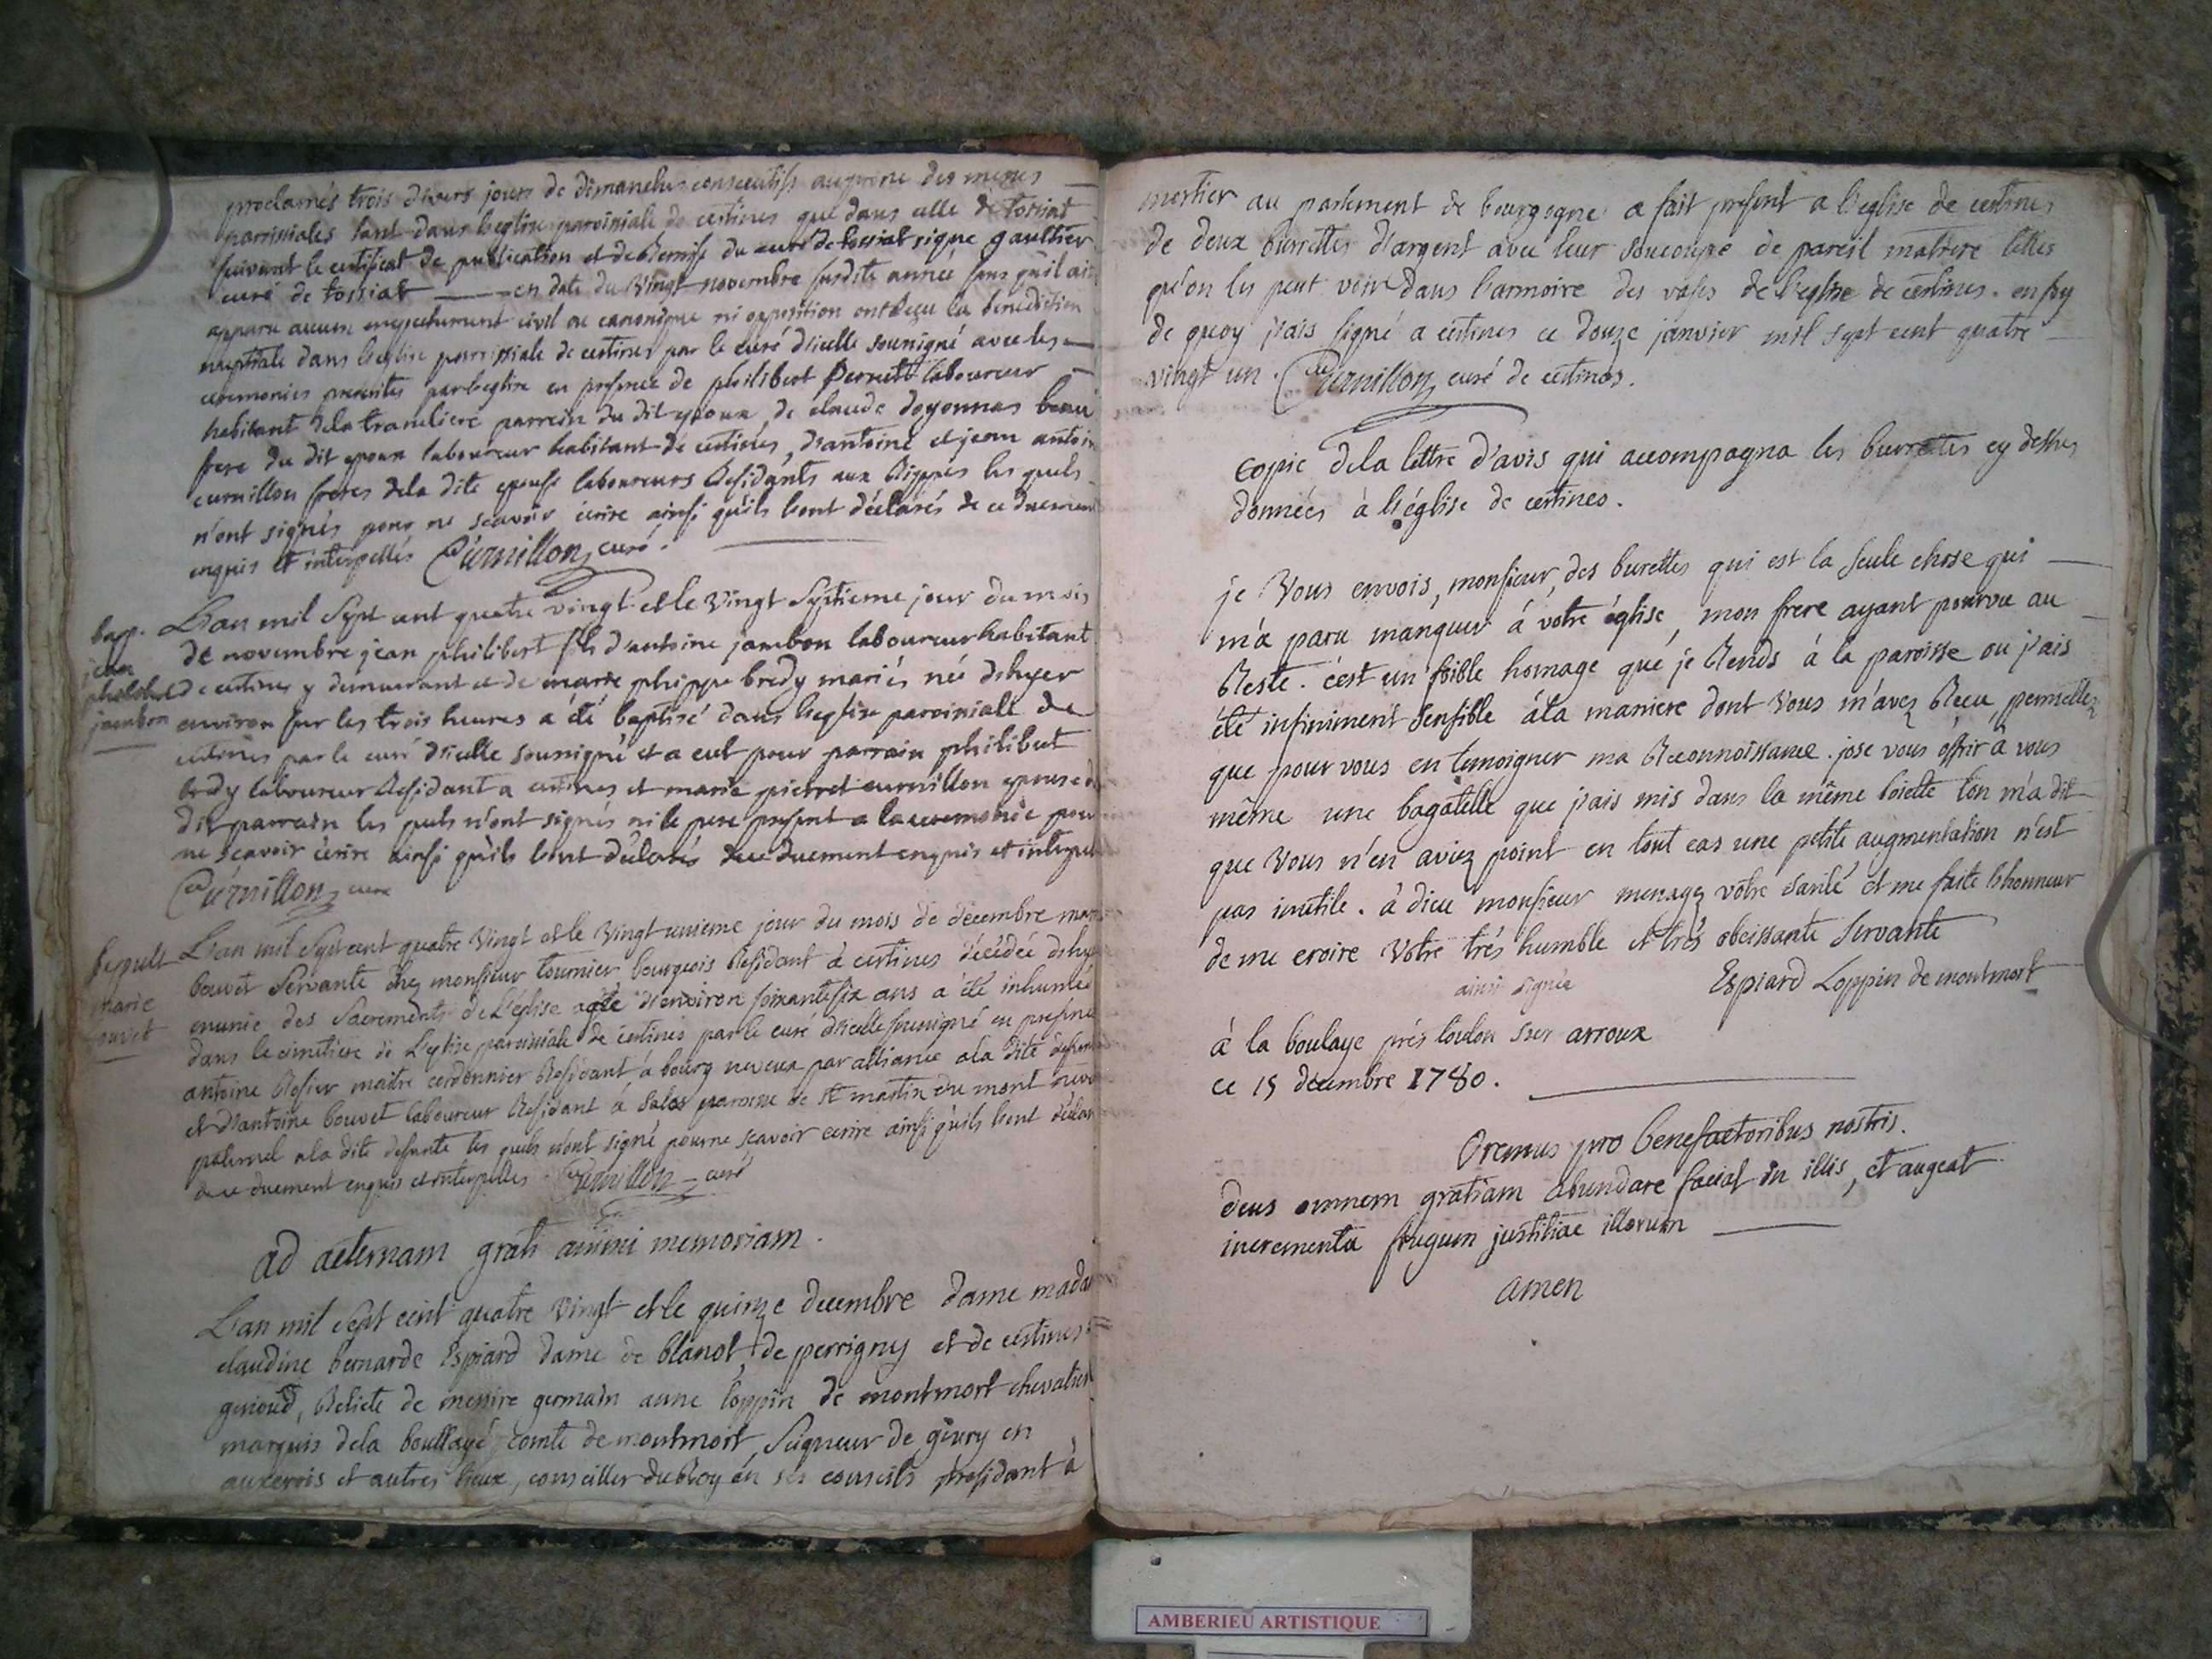 proclamés trois divers jours de dimanches consecutifs au prone des messes
parroissiales tant dans l'eglise paroissiale de certines que dans celle de tossiat
suivant le certificat de publication et de Remise du curé de tossiat signe gaultier
curé de tossiat en date du vingt novembre susdite année sans qu'il ait
apparu aucun empechement civil ou canonique ni opposition ont Reçu la benediction
nuptiale dans l'eglise parroissiale de certines par le curé d'icelle soussigné avec les
ceremonies prescrites par l'eglise en presence de philibert Perret laboureur
habitant de la tranclière parrein du dit epoux de claude doyonnas beau
frere du dit epoux laboureur habitant de certines, d'antoine et jean antoine
curnillon freres de la dite epouse laboureurs Residants aux Rippes les quels
n'ont signés pour ne scavoir écrire ainsi qu'ils l'ont déclarés de ce duement
enquis et interpellés Curnillon curé.
bapp.
jean
philibert
jambon
L'an mil sept cent quatre vingt et le vingt septieme jour du mois
de novembre jean philibert fils d'antoine jambon laboureur habitant
de certines y demeurant et de marie philippe bredy mariés né d'hyer
environ sur les trois heures a été baptisé dans l'eglise paroissiale de
certines par le curé d'icelle soussigné et a eut pour parrain philibert
bredy laboureur Residant a certines et marie pierret curnillon epouse du
dit parrain les quels n'ont signés ni le pere present a la ceremonie pour
ne scavoir écrire ainsi qu'ils l'ont déclarés de ce duement enquis et interpel
Curnillon curé
sepult
marie
bouvet
L'an mil sept cent quatre vingt et le vingt unieme jour du mois de decembre marie
bouvet servante chez monsieur tournier bourgeois Residant à certines décédée d'hyer
munie des sacrements de L'église agée d'environ soixante six ans a été inhumée
dans le cimetiere de L'eglise paroissiale de certines par le curé d'icelle soussigné en presence
antoine Rosier maitre cordonnier Residant à bourg neveux par alliance a la dite defunte
et d'antoine bouvet laboureur Residant a salos paroisse de st martin du mont neveu
paternel a la dite defunte les quels n'ont signé pour ne scavoir ecrire ainsi qu'ils l'ont déclaré
de ce duement enquis et interpellés Curnillon curé
ad aeternam grati animi memoriam.
L'an mil sept cent quatre vingt et le quinze decembre dame mada
claudine bernarde Espiard dame de blanot, de perrigny et de certines
genoud, Relicte de messire germain anne loppin de montmort chevalier
marquis de la boullaye, comte de montmort, Seigneur de givry en
auxerrois et autres lieux, conseiller du Roy en ses conseils président à
mortier au parlement de bourgogne a fait present a l'eglise de certines
de deux burrettes d'argent avec leur soucoupe de pareil matiere telles
qu'on les peut voir dans l'armoire des vases de l'eglise de certines. en foy
de quoy j'ais signé a certines ce douze janvier mil sept cent quatre
vingt un. Curnillon curé de certines.
copie de la lettre d'avis qui accompagna les burrettes cy dessus
données à l'église de certines.
je Vous envois, monsieur, des burettes qui est la seule chose qui
m'a paru manquer à votre église, mon frere ayant pourvu au
Reste. c'est un foible homage que je Rends à la paroisse ou j'ais
été infiniment sensible à la maniere dont Vous m'avez Recu, permettez
que pour vous en temoigner ma Reconnoissance. jose vous offrir à vous
même une bagatelle que j'ais mis dans la même boiette l'on m'a dit
que Vous n'en aviez point en tout cas une petite augmentation n'est
pas inutile. à dieu monsieur menagez votre santé et me faite l'honneur
de me croire Votre trés humble et trés obeissante Servante
ainsi signée Espiard Loppin de montmort
à la boulaye prés toulon sur arroux
ce 15 decembre 1780.
Oremus pro benefactoribus nostris.
deus omnem gratiam abundare faciat in illis, et augeat
incrementa frugum justitiae illorum
amen
AMBERIEU ARTISTIQUE